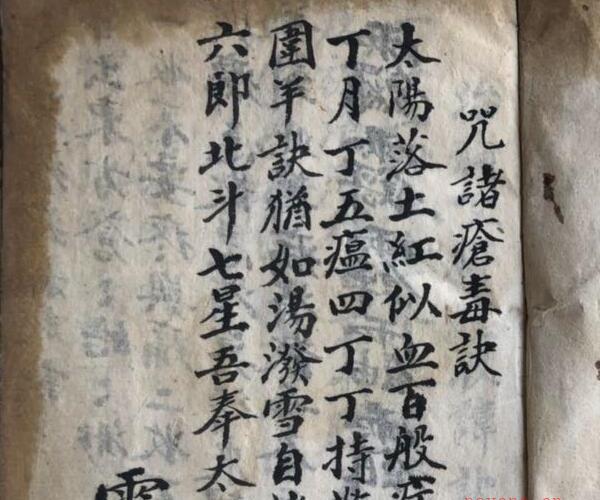 咒諸瘡毒訣
太陽落土紅似血百般
丁月丁五瘟四丁丁持
圍羊訣猶如湯潑雪自
六郎北斗七星吾奉太